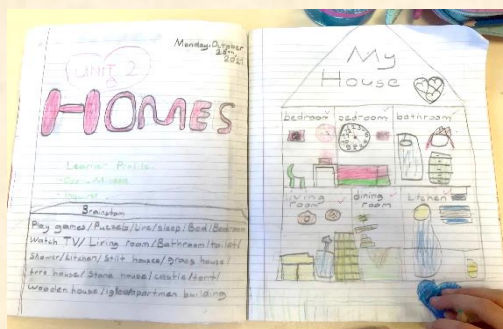 Monday, October
25th
2021
UNIT 2
HOMES
Learner Profile
Brainstorm
Play games/Puzzels/Live/sleep/Bed/Bedroom
Watch TV/Living room/Bathroom/toilet/
Shower/kitchen/Stilt house/grass house/
tree house/Stone house/castle/tent/
Wooden house/igloo/apartmen building
My
House
bedroom bedroom bathroom
living dining kitchen
room room